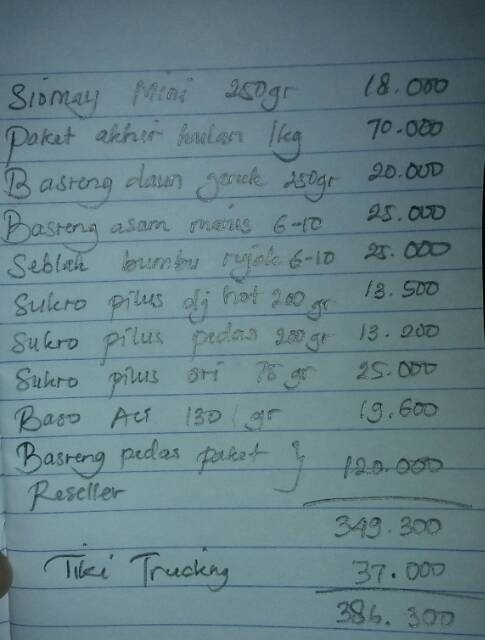 Siomay Mini 250gr 18.000
Paket akhir bulan 1kg 70.000
Basreng daun jeruk 250gr 20.000
Basreng asam manis 6-10 25.000
Seblak bumbu rujak 6-10 25.000
Sukro pilus dj hot 200 gr 13.500
Sukro pilus pedas 200gr 13.200
Sukro pilus ori 75 gr 25.000
Baso Aci 130 gr 19.600
Basreng pedas paket } 120.000
Reseller
349.300
Tiki Trucking 37.000
386.300